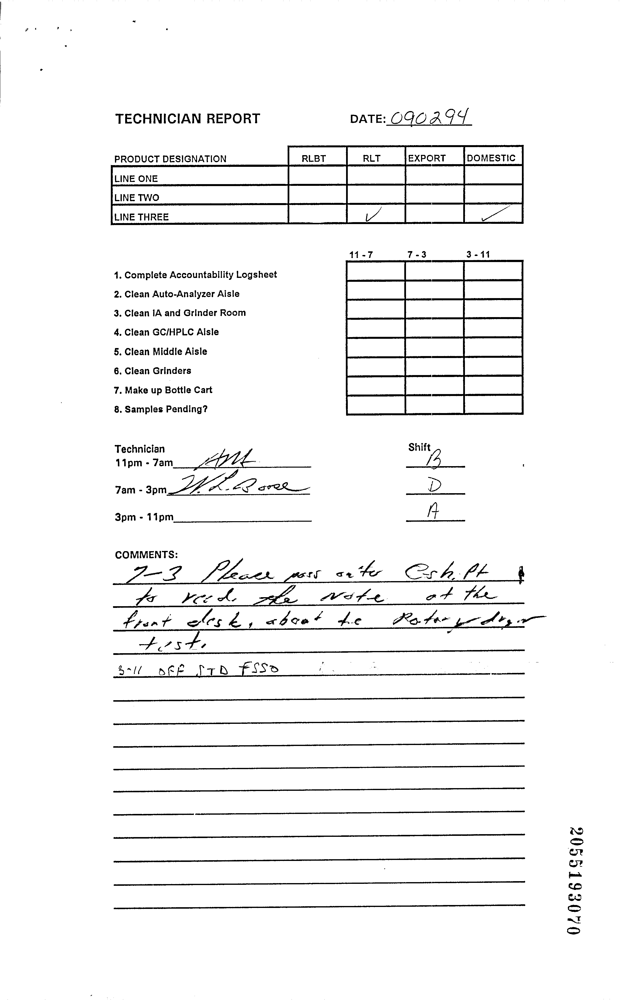 TECHNICIAN REPORT DATE: 090294
PRODUCT DESIGNATION RLBT RLT EXPORT DOMESTIC
LINE ONE
LINE TWO
LINE THREE ✓ ✓
11 - 7 7 - 3 3 - 11
1. Complete Accountability Logsheet
2. Clean Auto-Analyzer Aisle
3. Clean IA and Grinder Room
4. Clean GC/HPLC Aisle
5. Clean Middle Aisle
6. Clean Grinders
7. Make up Bottle Cart
8. Samples Pending?
Technician Shift
11pm - 7am B
7am - 3pm W.L. Bone D
3pm - 11pm A
COMMENTS:
7-3 Please pass on to
to read the Note at the
front desk, about the Rotary dryer
test.
3-11 OFF STD FSSD
2055193070